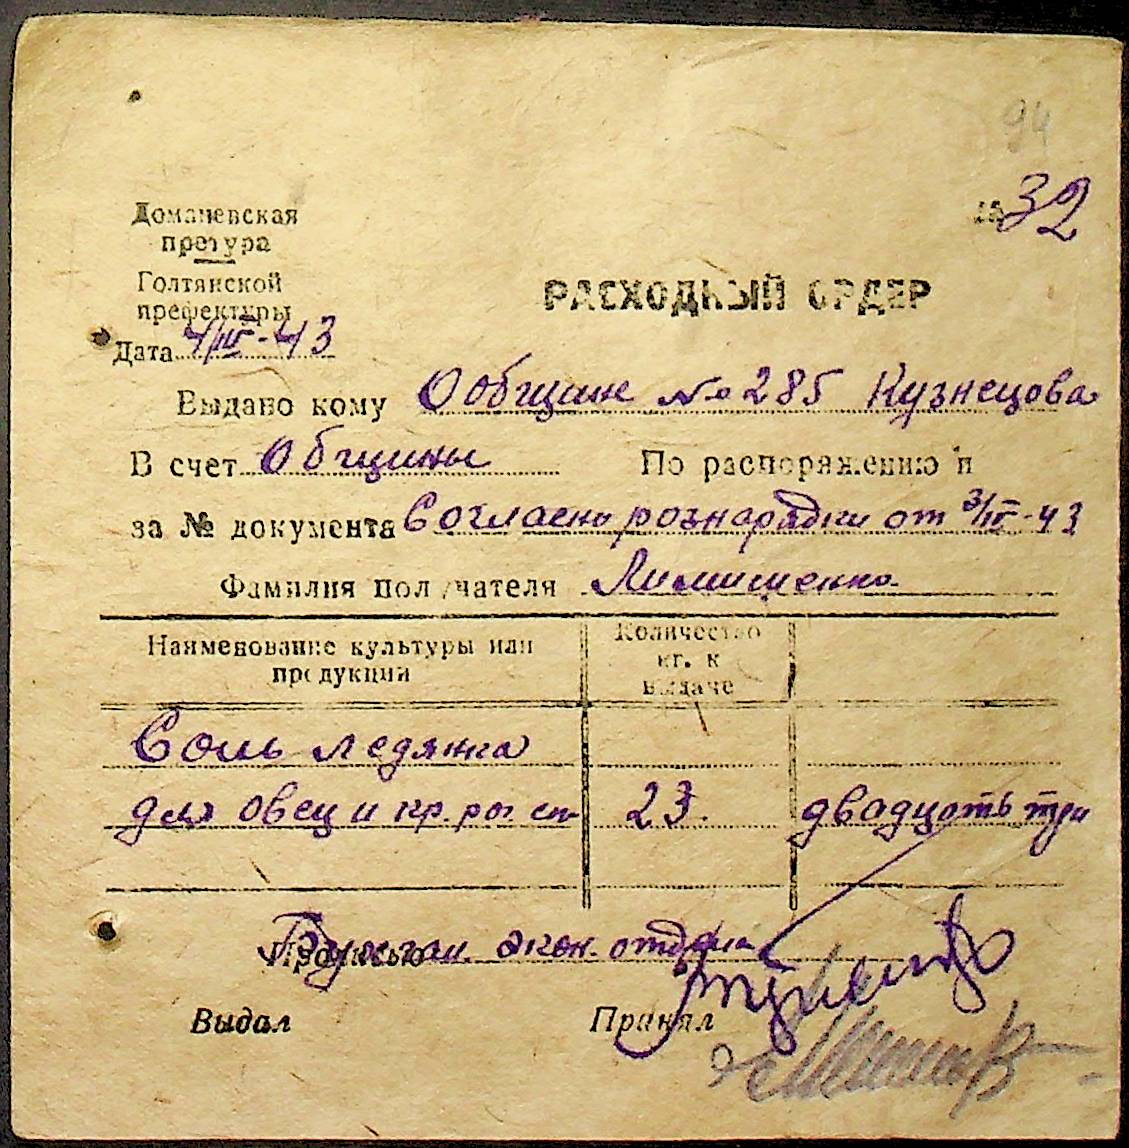 94
Доманевская
претура
№ 32
Голтянской
префектуры
РАСХОДНЫЙ ОРДЕР
Дата 4/III-43
Выдано кому Общине № 285 Кузнецова
В счет Общины По распоряжению и
за № документа Согласно рознарядки от 3/III-43
Фамилия получателя
Наименование культуры или продукции
Количество кг. к выдаче
Соль ледянка
для овец и кр. 23. двадцать три
Прописью экон. отдела
Выдал Принял